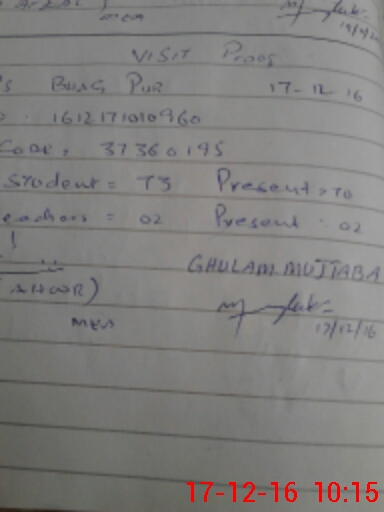 MEA
19/9/
VISIT PROOF
'S BHAG PUR 17-12-16
. 1612171010960
CODE, 37360195
STUDENT = 73 Present = 70
eachers = 02 Present : 02
!
GHULAM MUJTABA
MEA
17/12/16
17-12-16 10:15